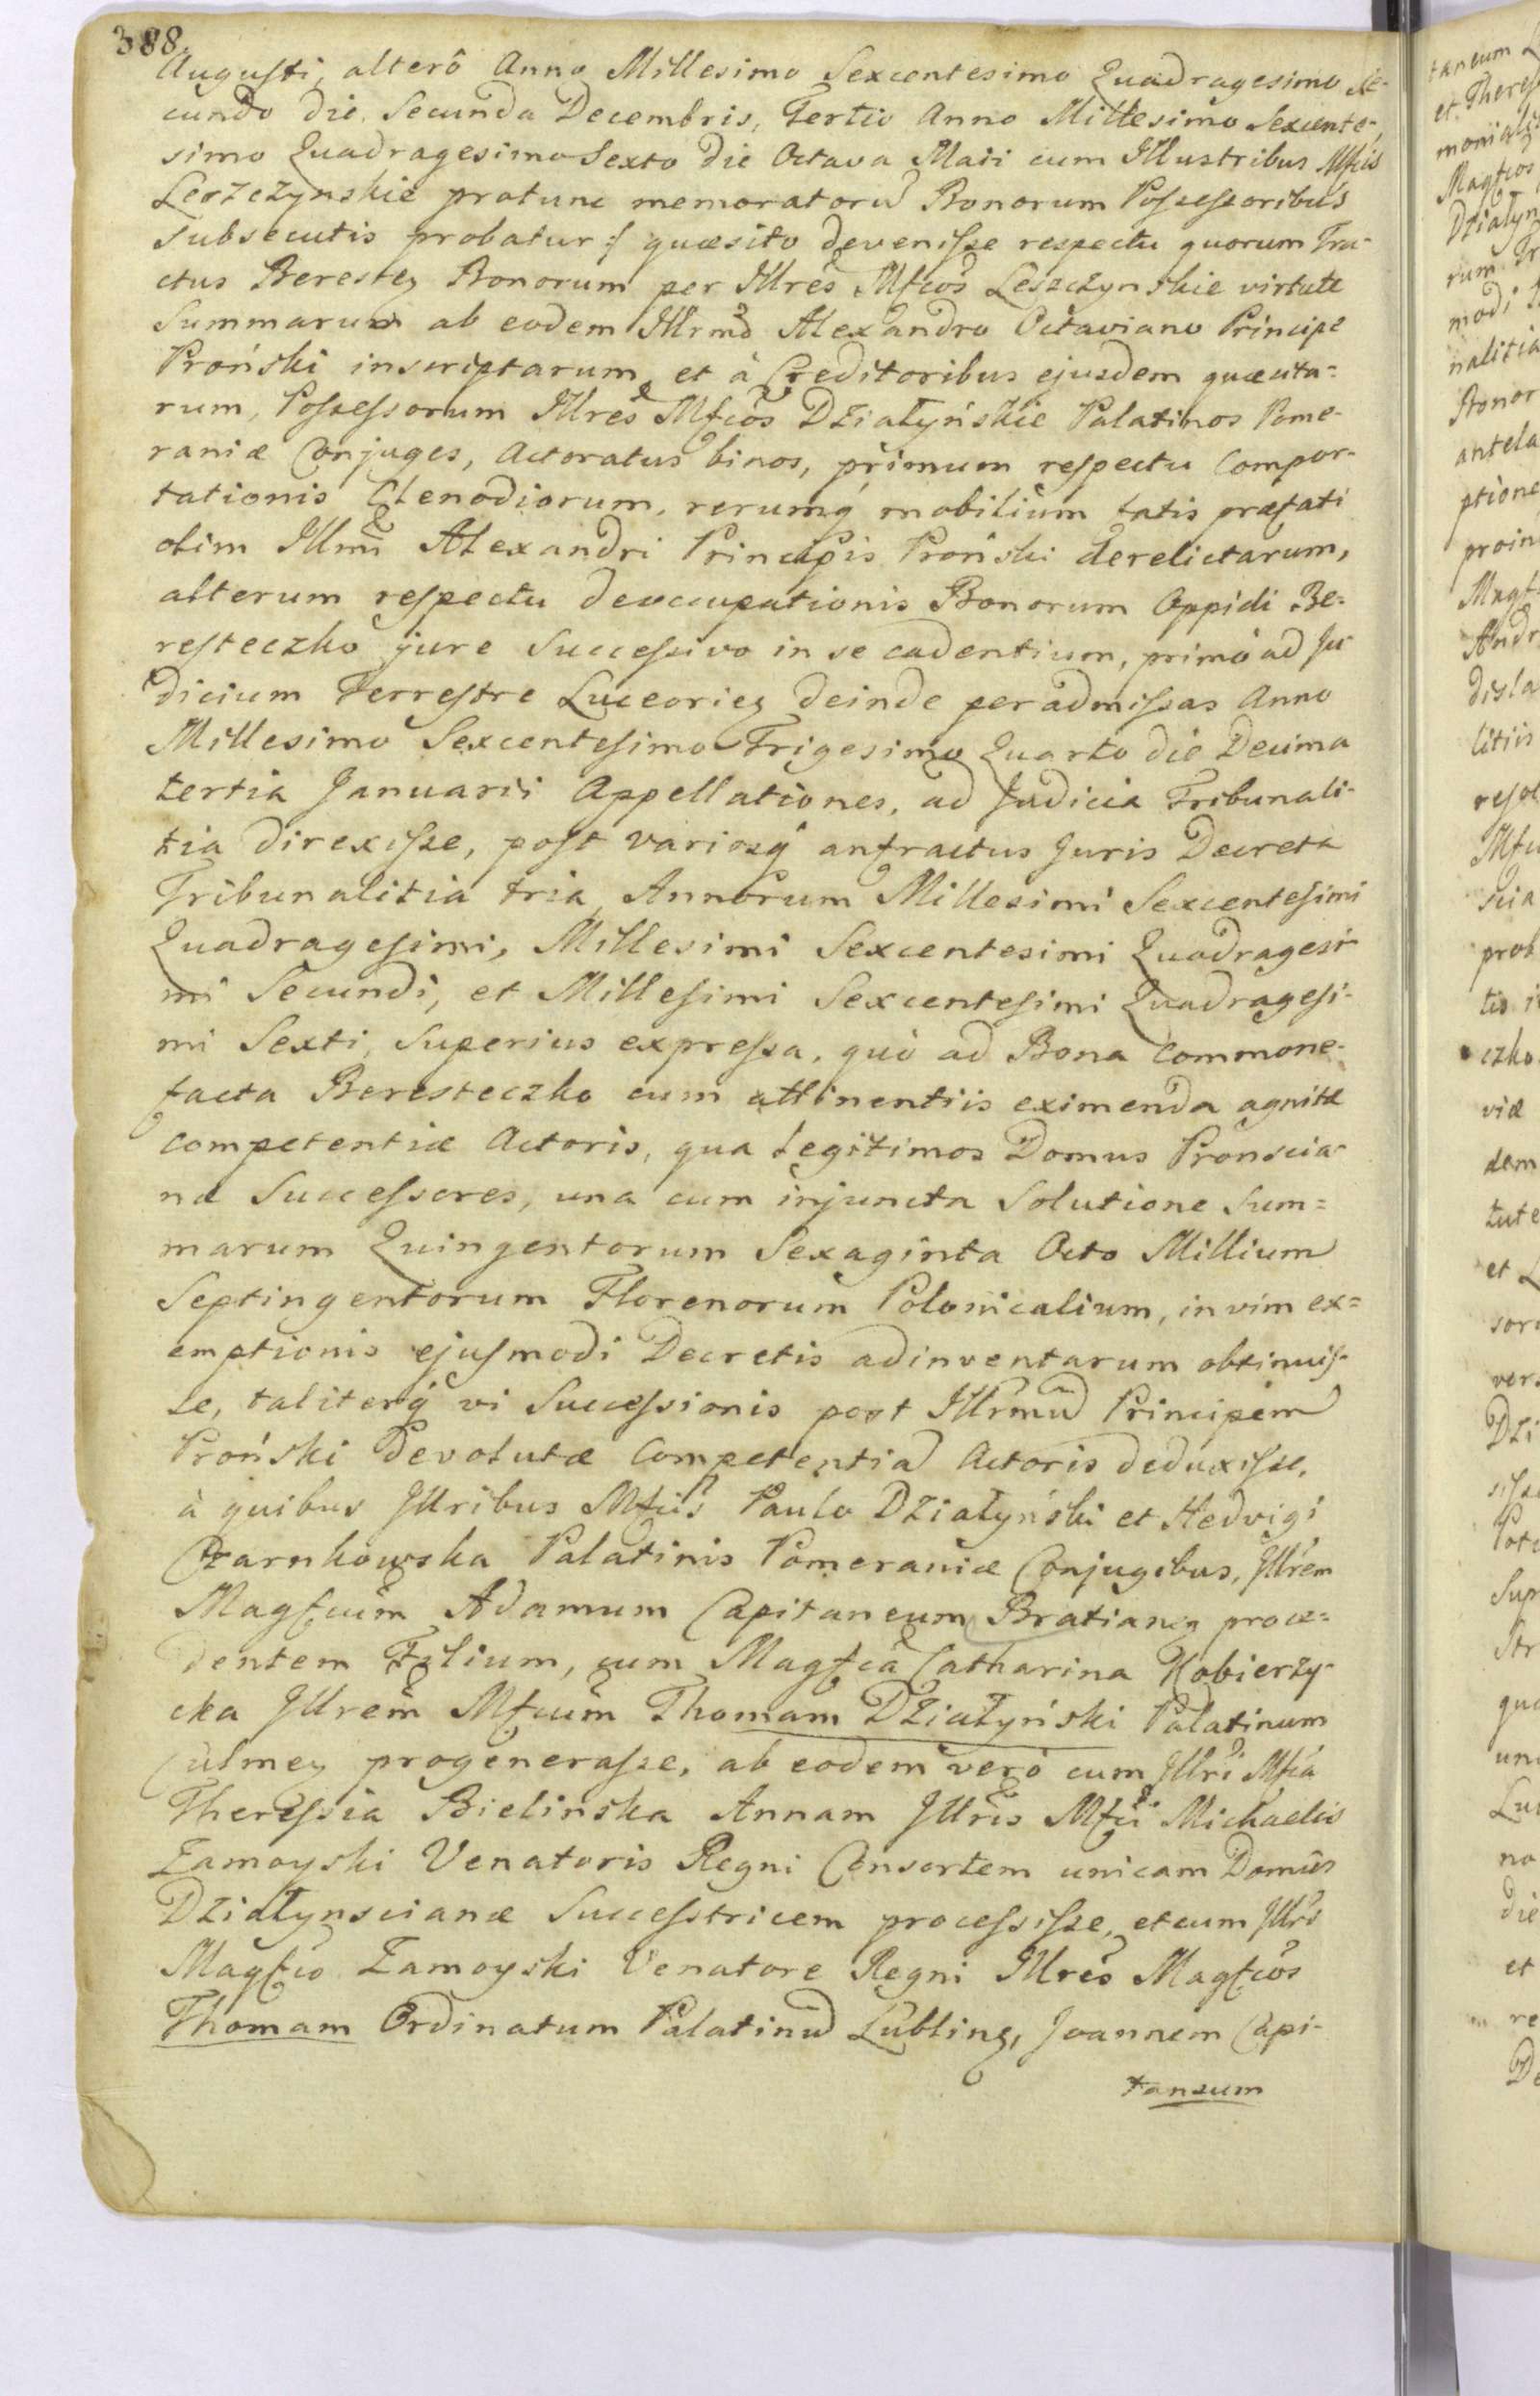 388.
Augusti, alterô Anno Millesimo Sexcentesimo Quadragesimo Se-
cundo die Secunda Decembris, Tertio Anno Millesimo Sexcente-
simo Quadragesimo Sexto die Octava Maii cum Illustribus Mfcis
Leszczynskie protunc memoratorũ Bonorum Possessoribus
subsecutis probatur :/ quæsito devenisse respectu quorum Tra-
ctus Beresteӡ Bonorum per Illres Mfcos Leszczynskie virtute
Summarum ab eodem Illrmo Alexandro Octaviano Principe
Proński inscriptarum, et à Creditoribus ejusdem quæsita-
rum, Possessorum Illres Mfcos Działyńskie Palatinos Pome-
raniæ Conjuges, Actoratus binos, primum respectu Compor-
tationis Clenodiorum, rerumq́ mobilium fatis præfati
olim Illmi Alexandri Principis Proński derelictarum,
alterum respectu deoccupationis Bonorum Oppidi Be-
resteczko jure Successivo in se cadentium, primò ad Ju-
dicium Terrestre Luceorieӡ deinde per admissas Anno
Millesimo Sexcentesimo Trigesimo Quarto die Decima
tertia Januarii Appellationes, ad Judicia Tribunali-
tia direxisse, post variosq́ anfractus Juris Decreta
Tribunalitia tria, Annorum Millesimi Sexcentesimi
Quadragesimi, Millesimi Sexcentesimi Quadragesi-
mi Secundi, et Millesimi Sexcentesimi Quadragesi-
mi Sexti, Superius expressa, quò ad Bona Commone-
facta Beresteczko cum attinentiis eximenda agnitæ
competentiæ Actoris, qua legitimos Domus Pronscia-
næ Successores, una cum injuncta Solutione Sum-
marum Quingentorum Sexaginta Octo Millium
Septingentorum Florenorum Polonicalium, in vim ex-
emptionis ejusmodi Decretis adinventarum obtinuis-
se, taliterq́ vi Successionis post Illrmũ Principem
Proński devolutæ Competentiã Actoris deduxisse,
à quibus Illribus Mfcis Paulo Działyński et Hedvigi
Czarnkowska Palatinis Pomeraniæ Conjugibus, Illrem
Magfcum Adamum Capitaneum Bratianeӡ proce-
dentem Filium, cum Magfca Catharina Kobierzy-
cka Illrem Mfcum Thomam Działyński Palatinum
Culmeӡ progenerasse, ab eodem verò cum Illri Mfca
Theressia Bielinska Annam Illris Mfci Michaelis
Zamoyski Venatoris Regni Consortem unicam Domûs
Działynscianæ Successtricem processisse, et cum Illri
Magfco Zamoyski Venatore Regni Illres Magfcos
Thomam Ordinatum Palatinũ Lublineӡ, Joannem Capi-
taneum